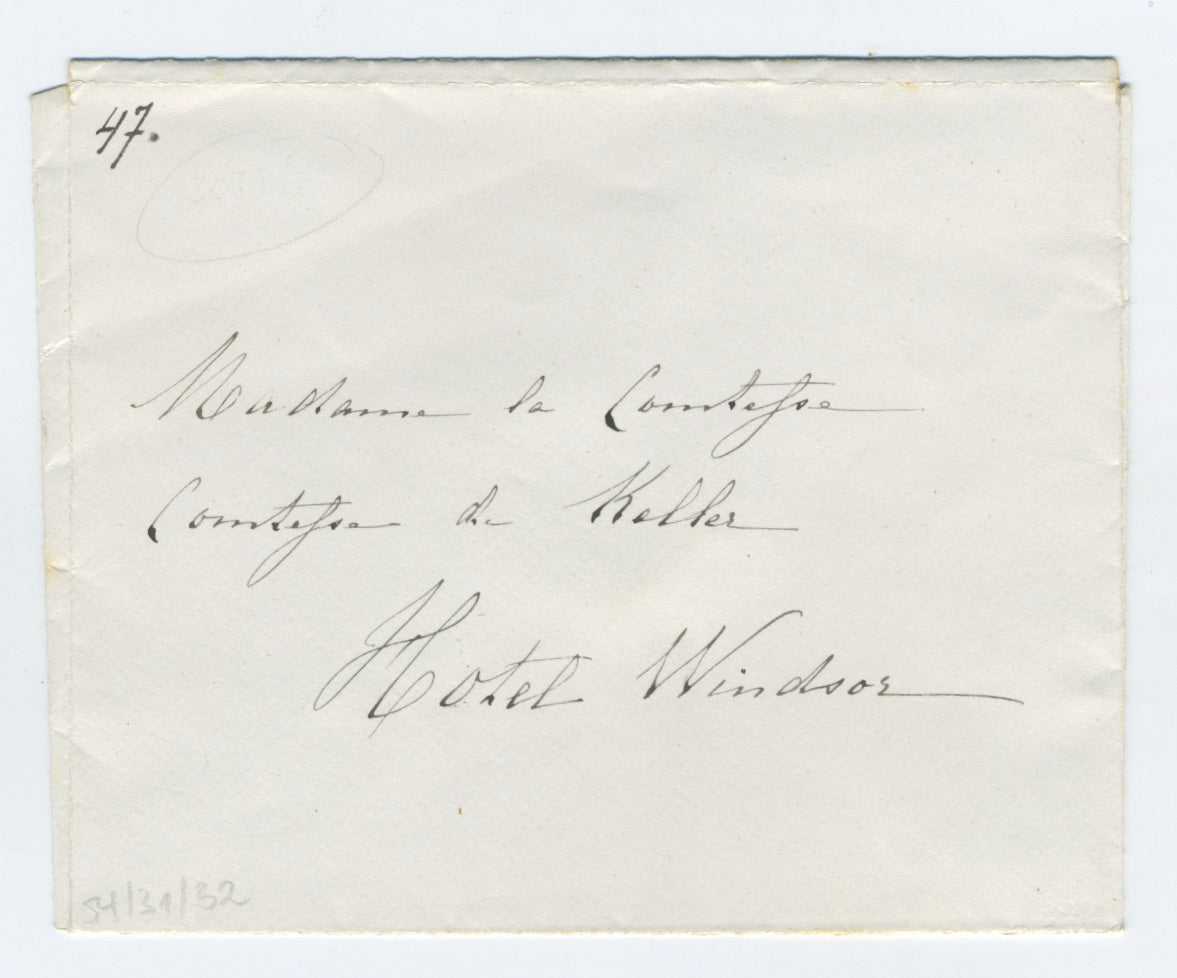 47.
Madame la Comtesse
Comtesse de Keller
Hotel Windsor
54/31/32